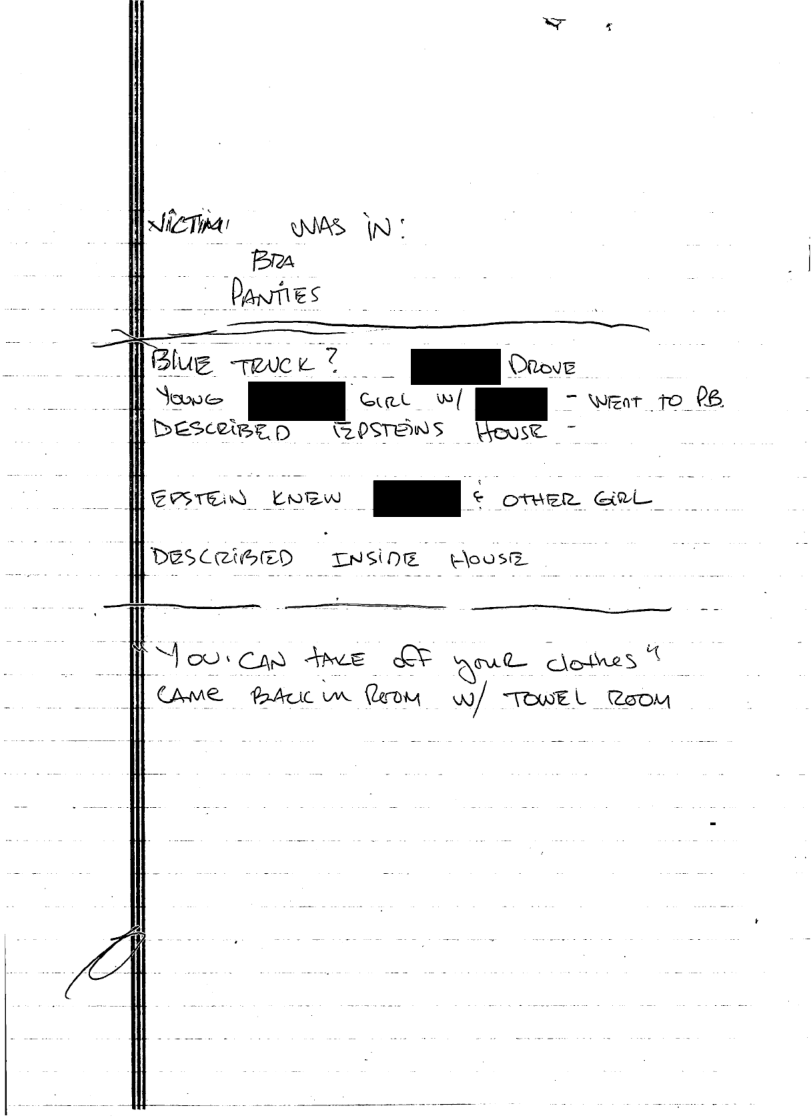 VICTIM: WAS IN:
BRA
PANTIES
BLUE TRUCK? DROVE
YOUNG GIRL W/ - WENT TO P.B.
DESCRIBED EPSTEINS HOUSE -
EPSTEIN KNEW & OTHER GIRL
DESCRIBED INSIDE HOUSE
"YOU CAN TAKE OFF your clothes"
CAME BACK in ROOM W/ TOWEL ROOM